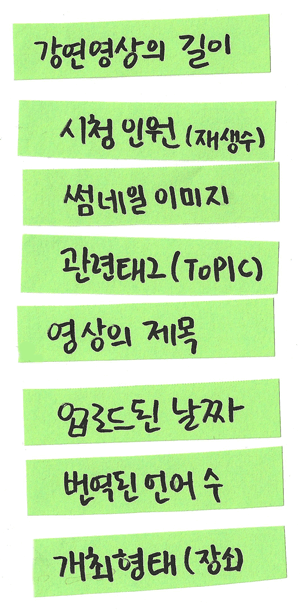 강연영상의 길이
시청 인원 (재생수)
썸네일 이미지
관련태그 (TOPIC)
영상의 제목
업로드된 날짜
번역된 언어 수
개최형태 (장소)